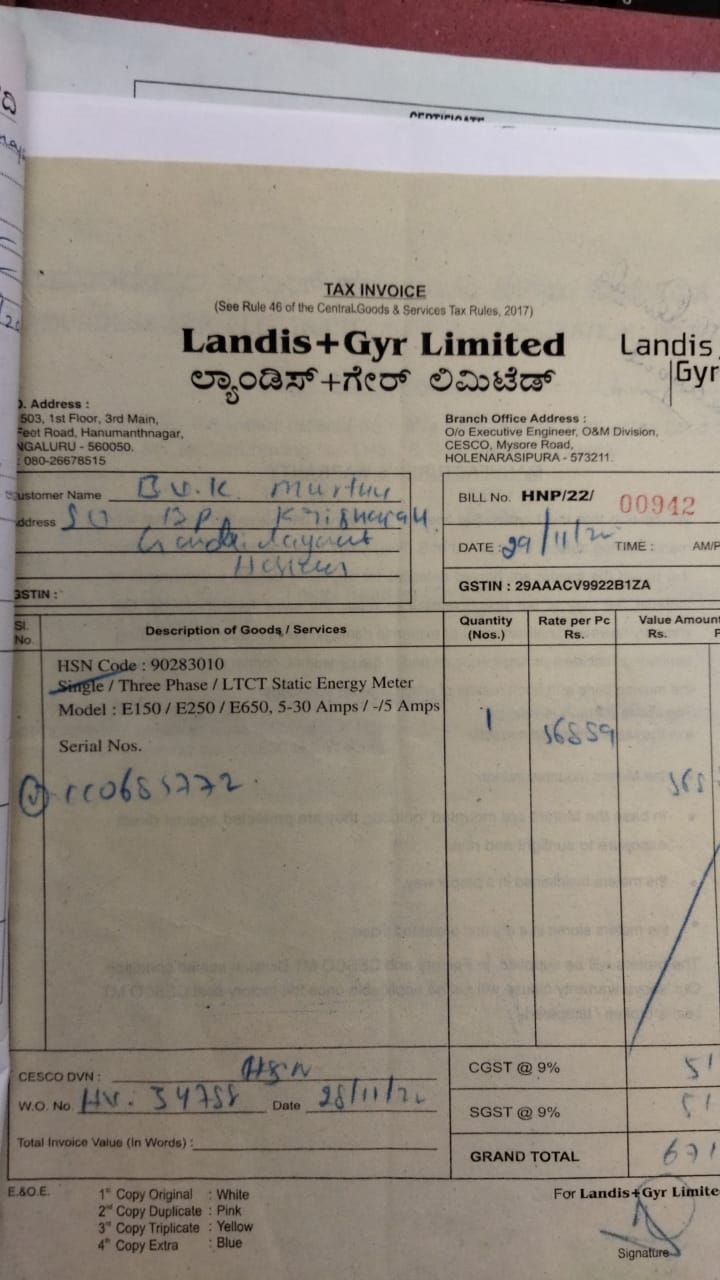 TAX INVOICE
(See Rule 46 of the Central Goods & Services Tax Rules, 2017)
Landis+Gyr Limited
ಲ್ಯಾಂಡಿಸ್+ಗೇರ್ ಲಿಮಿಟೆಡ್
Landis
Gyr
Address :
503, 1st Floor, 3rd Main,
Feet Road, Hanumanthnagar,
NGALURU - 560050.
: 080-26678515
Branch Office Address :
O/o Executive Engineer, O&M Division,
CESCO, Mysore Road,
HOLENARASIPURA - 573211.
Customer Name B.V.K. Murthy
Address S/O B.P.
GSTIN :
BILL No. HNP/22/ 00942
DATE : 29/11/22 TIME : AM/P
GSTIN : 29AAACV9922B1ZA
Sl. No. Description of Goods / Services Quantity (Nos.) Rate per Pc Rs. Value Amount Rs. P
HSN Code : 90283010
Single / Three Phase / LTCT Static Energy Meter
Model : E150 / E250 / E650, 5-30 Amps / -/5 Amps
1
Serial Nos.
CESCO DVN : HSN
W.O. No. HV. 34758 Date 28/11/22
Total Invoice Value (In Words) :
CGST @ 9% 51
SGST @ 9% 51
GRAND TOTAL 671
E.&O.E.
1st Copy Original : White
2nd Copy Duplicate : Pink
3rd Copy Triplicate : Yellow
4th Copy Extra : Blue
For Landis+Gyr Limite
Signature